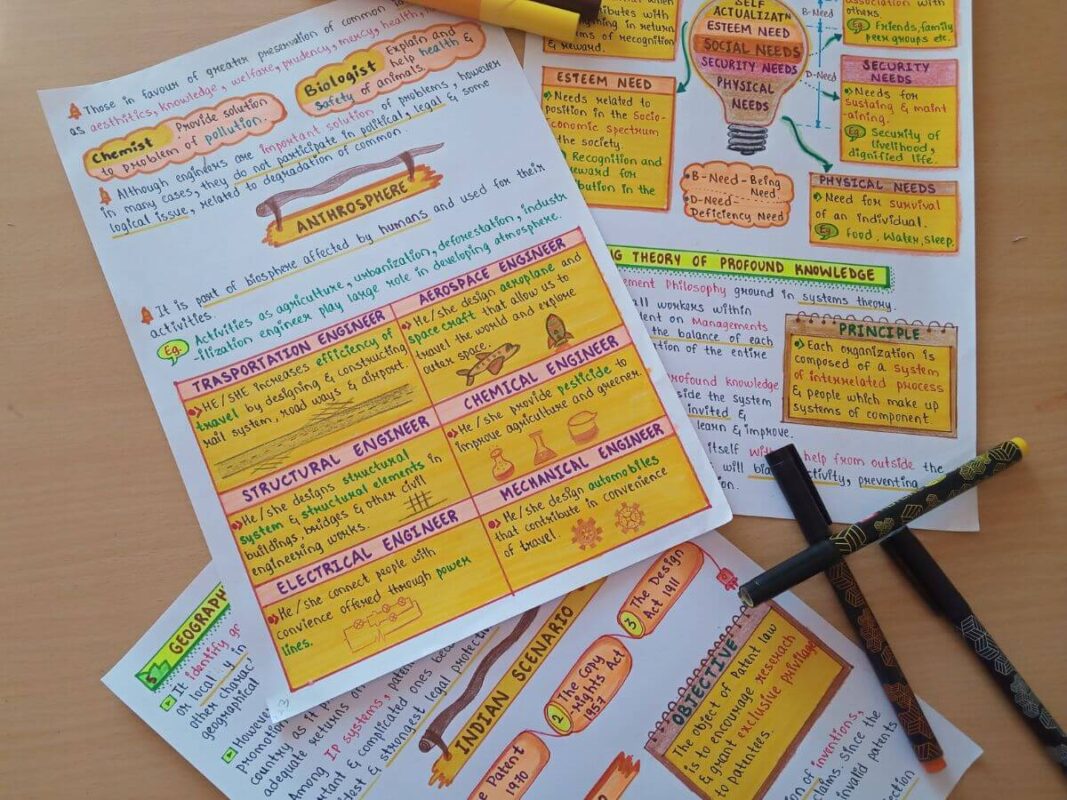 Those in favour of greater preservation of common
as aesthitics, knowledge, welfare, prudency, mercy, health,
Chemist Provide solution
to problem of pollution.
Biologist Explain and
help health &
Safety of animals.
Although engineers are important solution of problems, however
in many cases, they do not participate in political, legal & some
logical issue, related to degradation of common.
ANTHROSPHERE
It is part of biosphere affected by humans and used for their
activities.
Eg. Activities as agriculture, urbanization, deforestation, industr
-ilization engineer play large role in developing atmosphere.
TRASPORTATION ENGINEER
HE/SHE increases efficiency of
travel by designing & constructing
rail system, road ways & airport.
AEROSPACE ENGINEER
He/she design aeroplane and
space craft that allow us to
travel the world and explore
outer space.
STRUCTURAL ENGINEER
He/she designs structural
system & structural elements in
buildings, bridges & other civil
engineering works.
CHEMICAL ENGINEER
He/she provide pesticide to
improve agriculture and greener.
ELECTRICAL ENGINEER
He/she connect people with
convience offered through power
lines.
MECHANICAL ENGINEER
He/she design automobiles
that contribute in convenience
of travel.
tributes with
in return
of recognition
& reward.
ESTEEM NEED
Needs related to
position in the Socio-
economic Spectrum
the society
Recognition and
reward for
in the
SELF
ACTUALIZATN
ESTEEM NEED
SOCIAL NEEDS
SECURITY NEEDS
PHYSICAL
NEEDS
B-Need
D-Need
B-Need-Being
Need
D-Need-
Deficiency Need
association with
others
Eg Friends, family
peer groups etc.
SECURITY
NEEDS
Needs for
sustaing & maint
-aining.
Eg Security of
livelihood,
dignified life.
PHYSICAL NEEDS
Need for survival
of an individual.
Eg Food, Water, sleep.
G THEORY OF PROFOUND KNOWLEDGE
ement Philosophy ground in systems theory.
all workers within
on Managements
the balance of each
of the entire
PRINCIPLE
Each organization is
composed of a system
of interrelated process
& people which make up
systems of component.
rofound knowledge
the system
invited &
learn & improve.
itself help from outside the
will preventing
5 GEOGRAPH
It identify
or local
other charac,
geographical
However
promotion
country as it
adequate returns
Among IP systems,
& complicated ones
& strongest legal
INDIAN SCENARIO
Patent
1970
2 The Copy
-Rights Act
1957
3 The Design
Act 1911
OBJECTIVE
The object of Patent law
is to encourage reserach
& grant exclusive privilage
to patentees.
of inventions,
claims. Since the
invalid patents